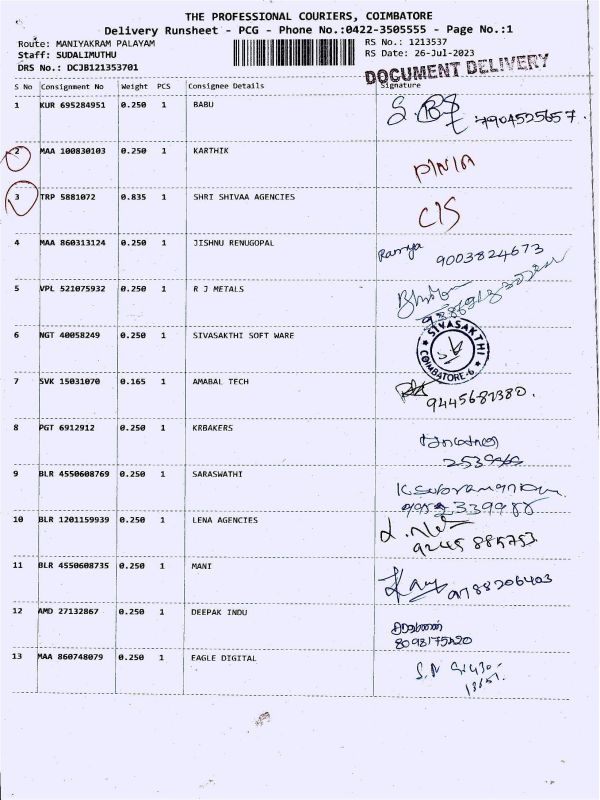 THE PROFESSIONAL COURIERS, COIMBATORE
Delivery Runsheet - PCG - Phone No.:0422-3505555 - Page No.:1
Route: MANIYAKRAM PALAYAM RS No.: 1213537
Staff: SUDALIMUTHU RS Date: 26-Jul-2023
DRS No.: DCJB121353701 DOCUMENT DELIVERY
S No Consignment No Weight PCS Consignee Details Signature
1 KUR 695284951 0.250 1 BABU 7904525657
2 MAA 100830103 0.250 1 KARTHIK
3 TRP 5881072 0.835 1 SHRI SHIVAA AGENCIES C/S
4 MAA 860313124 0.250 1 JISHNU RENUGOPAL Ramya 9003824673
5 VPL 521075932 0.250 1 R J METALS
6 NGT 40058249 0.250 1 SIVASAKTHI SOFT WARE SIVASAKTHI COIMBATORE-6
7 SVK 15031070 0.165 1 AMABAL TECH
8 PGT 6912912 0.250 1 KRBAKERS
9 BLR 4550608769 0.250 1 SARASWATHI
10 BLR 1201159939 0.250 1 LENA AGENCIES 9245885753
11 BLR 4550608735 0.250 1 MANI 9788206403
12 AMD 27132867 0.250 1 DEEPAK INDU
13 MAA 860748079 0.250 1 EAGLE DIGITAL